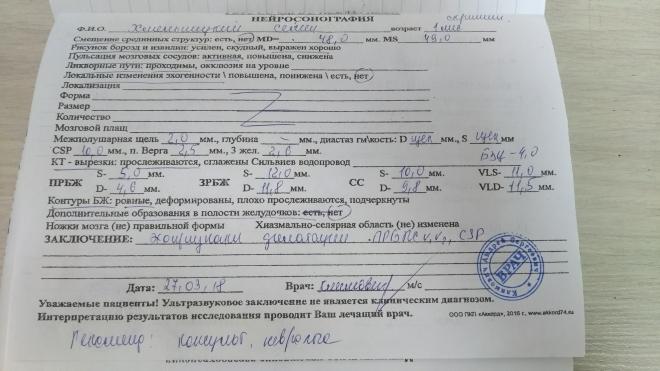 НЕЙРОСОНОГРАФИЯ
скрининг
Ф.И.О. Хмельницкий Семён возраст 1 мес
Смещение срединных структур: есть, нет MD= 48,0 мм. MS 49,0 мм.
Рисунок борозд и извилин: усилен, скудный, выражен хорошо
Пульсация мозговых сосудов: активная, повышена, снижена
Ликворные пути: проходимы, окклюзия на уровне
Локальные изменения эхогенности \ повышена, понижена \ есть, нет
Локализация
Форма
Размер
Количество
Мозговой плащ
Межполушарная щель 2,0 мм., глубина – мм., диастаз гм\кость: D щел мм, S щел мм
CSP 10,0 мм., п. Верга 2,5 мм., 3 жел. 2,6 мм.
КТ - вырезки: прослеживаются, сглажены Сильвиев водопровод БЦ - 4,0
ПРБЖ S- 5,0 мм. ЗРБЖ S- 12,0 мм. СС S- 10,0 мм. VLS- 11,0 мм.
D- 4,6 мм. D- 11,8 мм. D- 9,8 мм. VLD- 11,5 мм.
Контуры БЖ: ровные, деформированы, плохо прослеживаются, подчеркнуты
Дополнительные образования в полости желудочков: есть, нет
Ножки мозга (не) правильной формы Хиазмально-селярная область (не) изменена
ЗАКЛЮЧЕНИЕ: дилатации
ВРАЧ
Дата: 27.03.18 Врач: м/с
Уважаемые пациенты! Ультразвуковое заключение не является клиническим диагнозом.
Интерпретацию результатов исследования проводит Ваш лечащий врач.
ООО ПКП «Аккорд», 2016 г., www.akkord74.ru
Рекоменд: консульт. невролога